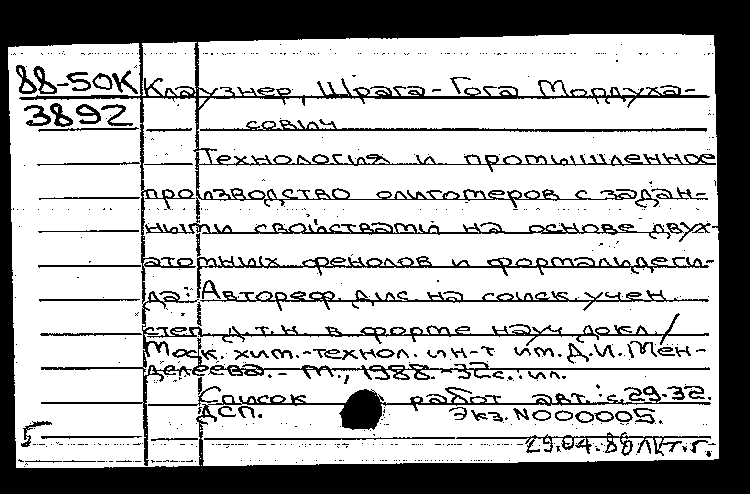 88-50К Клаузнер, Шрага-Гога Мордуха-
3892 сович
Технология и промышленное
производство олигомеров с задан-
ными свойствами на основе двух-
атомных фенолов и формальдеги-
да: Автореф. дис. на соиск. учен.
степ. д.т.н. в форме науч. докл. /
Моск. хим.-технол. ин-т им. Д.И. Мен-
делеева. - М., 1988. - 32с.: ил.
Список работ авт.: с. 29-32.
ДСП. Экз. N000005.
5 29.04.88